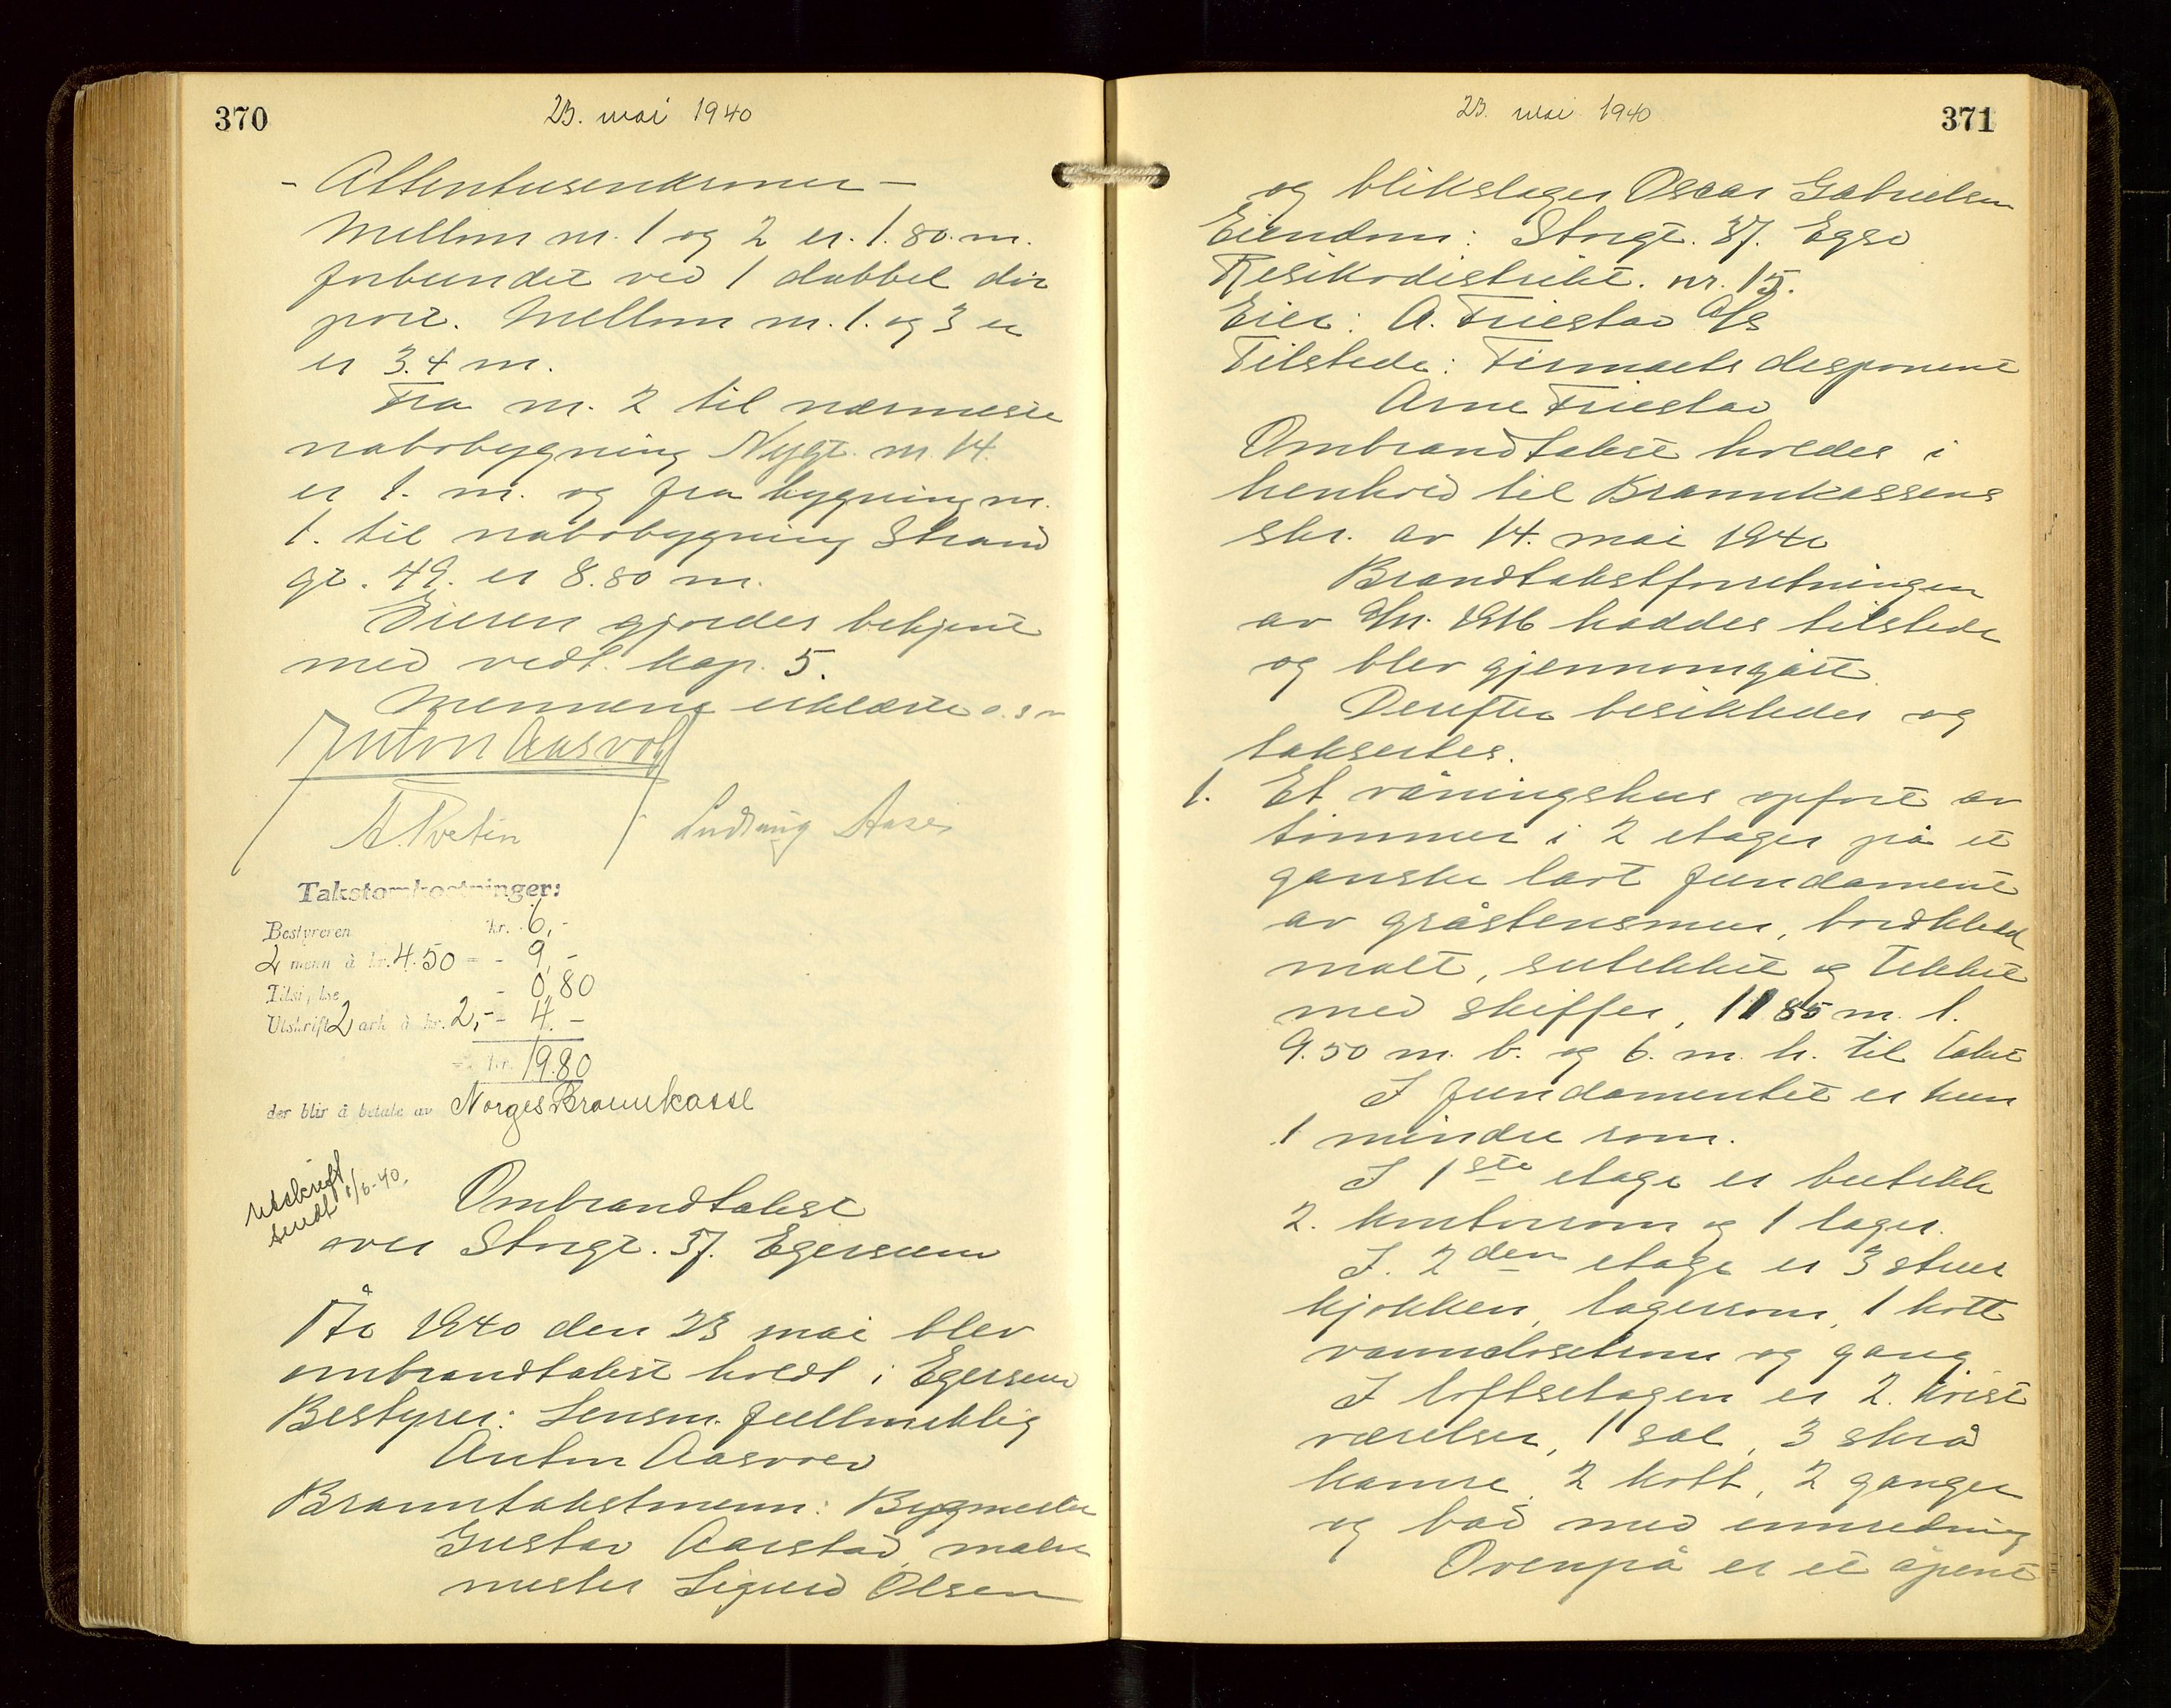 370
23. mai 1940
- Attentusenkroner -
Mellom nr. 1 og 2 er 1.80 m.
forbundet ved 1 dobbel dør
port. Mellom nr. 1. og 3 er
er 3.4 m.
Fra nr. 2 til nærmeste
nabobygning Nygt. nr. 14.
er 1. m. og fra bygning nr.
1. til nabobygning Strand
gt. 49. er 8.80 m.
Eieren gjordes bekjent
med vedt. kap. 5.
Mennene erklærte o.s.v
Anton Aasvold
A. Tveten / Ludvig Aase
Takstomkostninger:
Bestyreren kr. 6,-
2 menn à kr. 4.50 = - 9,-
Tilsigelse - 0,80
Utskrift 2 ark à kr. 2,- - 4.-
= kr. 19.80
der blir å betale av Norges Brannkasse
Utskrift
sendt 1/6-40.
Ombrandtakst
over Storgt. 37. Egersund
År 1940 den 23 mai blev
ombrandtakst holdt i Egersund
Bestyrer: Lensm. fullmektig
Anton Aasvold
Branntakstmenn: Bygmester
Gustav Aarstad, maler
mester Sigurd Olsen
23. mai 1940
371
og blikslager Oscar Gabrielsen
Eiendom: Storgt. 37. Egsd
Resikodistrikt. nr. 15.
Eier: A. Friestad A/S
Tilstede: Firmaets disponent
Arne Friestad
Ombrandtakst holdes i
henhold til Brannkassens
skr. av 14. mai 1940
Brandtakstforretningen
av 1916 haddes tilstede
og blev gjennomgått.
Derefter besiktedes og
taksertes.
1. Et våningshus opført av
tømmer i 2 etager på et
ganske lavt fundament
av gråstensmur, bordkledd
malt, sutekket og tekket
med skiffer, 11 85 m. l.
9.50 m. b. og 6. m. h. til taket
I fundamentet er kun
1 mindre rom.
I 1ste etage er butikk
2. kontorrom og 1 lager.
I. 2den etage er 3 stuer
kjøkken, lagerrom, 1 kott
vannclosetrom og gang
I loftsetagen er 2. kvist
værelser, 1 sal, 3 skrå
kamre, 2 kott, 2 ganger
og bad med innredning
Ovenpå er et åpent